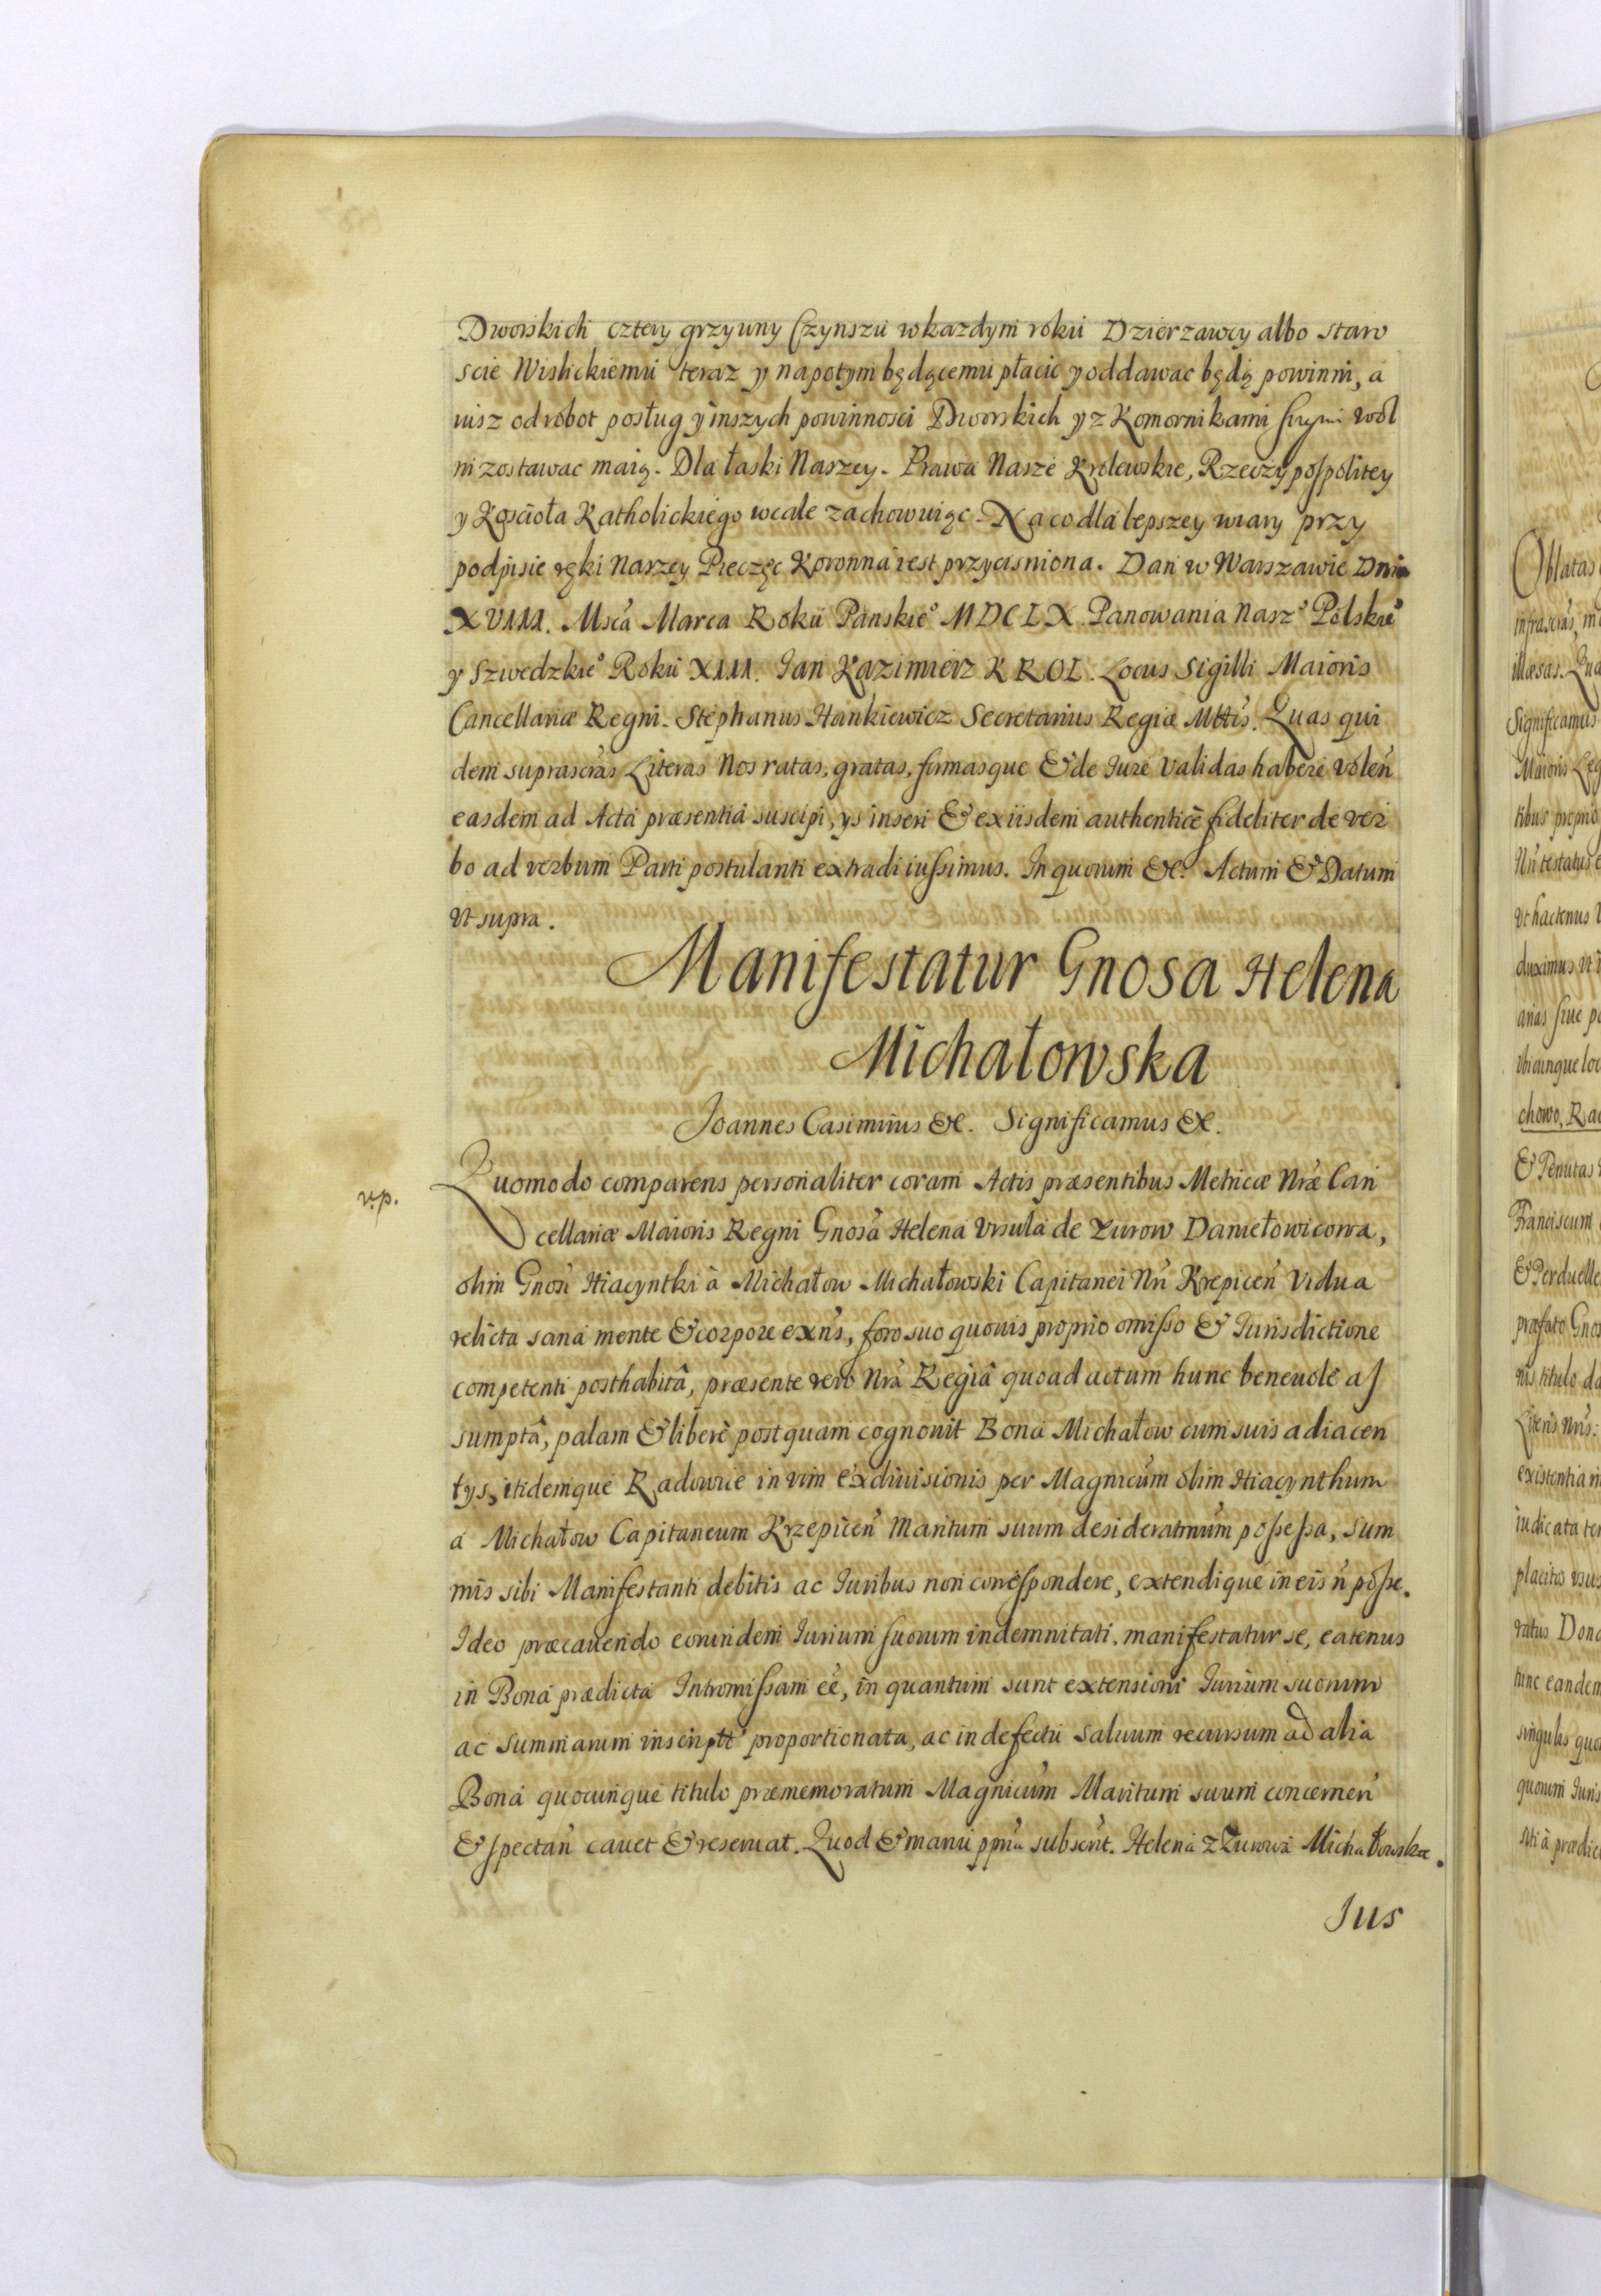 Dworskich cztery grzywny Czynszu w kazdym roku Dzierzawcy albo staro
scie Wislickiemu teraz y napotym będącemu płacic y oddawac będą powinni, a
nisz od robot posług y inszych powinnosci Dworskich y z Komornikami swymi wol
ni zostawac maią. Dla łaski Naszey. Prawa Nasze Krolewskie, Rzeczypospolitey
y Koscioła Katholickiego wcale zachowuiąc. Na co dla lepszey wiary przy
podpisie ręki Naszey Pieczęc Koronna iest przycisniona. Dan w Warszawie Dnia
XVIII. Msca Marca Roku Panskie° MDCLX. Panowania Nasz° Polskie°
y Szwedzkie° Roku XIII. Ian Kazimierz KROL. Locus Sigilli Maioris
Cancellariæ Regni. Stephanus Hankiewicz Secretarius Regiæ Mttis. Quas qui
dem suprascras Literas Nos ratas, gratas, firmasque & de Iure validas habere volen
easdem ad Acta præsentia suscipi, ys inseri & ex iisdem authenticè fideliter de ver
bo ad verbum Parti postulanti extradi iussimus. In quorum &c. Actum & Datum
vt supra.
Manifestatur Gnosa Helena
Michałowska
Joannes Casimirus &c. Significamus &c.
v.p.
Quomodo comparens personaliter coram Actis præsentibus Metricæ Nræ Can
cellariæ Maioris Regni Gnosa Helena Vrsula de Zurow Daniełowicowa,
olim Gnosi Hiacynthi à Michałow Michałowski Capitanei Nri Krzepicen Vidua
relicta sana mente & corpore exns, foro suo quouis proprio omisso & Iurisdictione
competenti posthabitâ, præsente vero Nrâ Regiâ quoad actum hunc beneuolè as
sumptâ, palam & liberè postquam cognouit Bona Michałow cum suis adiacen
tys, itidemque Radowie in vim exdiuisionis per Magnicum olim Hiacynthum
a Michałow Capitaneum Krzepicen Maritum suum desideratmum possessa, Sum
mis sibi Manifestanti debitis ac Iuribus non correspondere, extendique in eis n posse.
Ideo præcauendo eorundem Iurium suorum indemnitati, manifestatur se, eatenus
in Bona prædicta Intromissam eê, in quantum sunt extensioni Iurium suorum
ac summarum inscriptt proportionata, ac in defectu saluum recursum ad alia
Bona quocunque titulo præmemoratum Magnicum Maritum suum concernen
& spectan cauet & reseruat. Quod & manu ppria subscrit. Helena z Zurowa Michałowska.
Ius